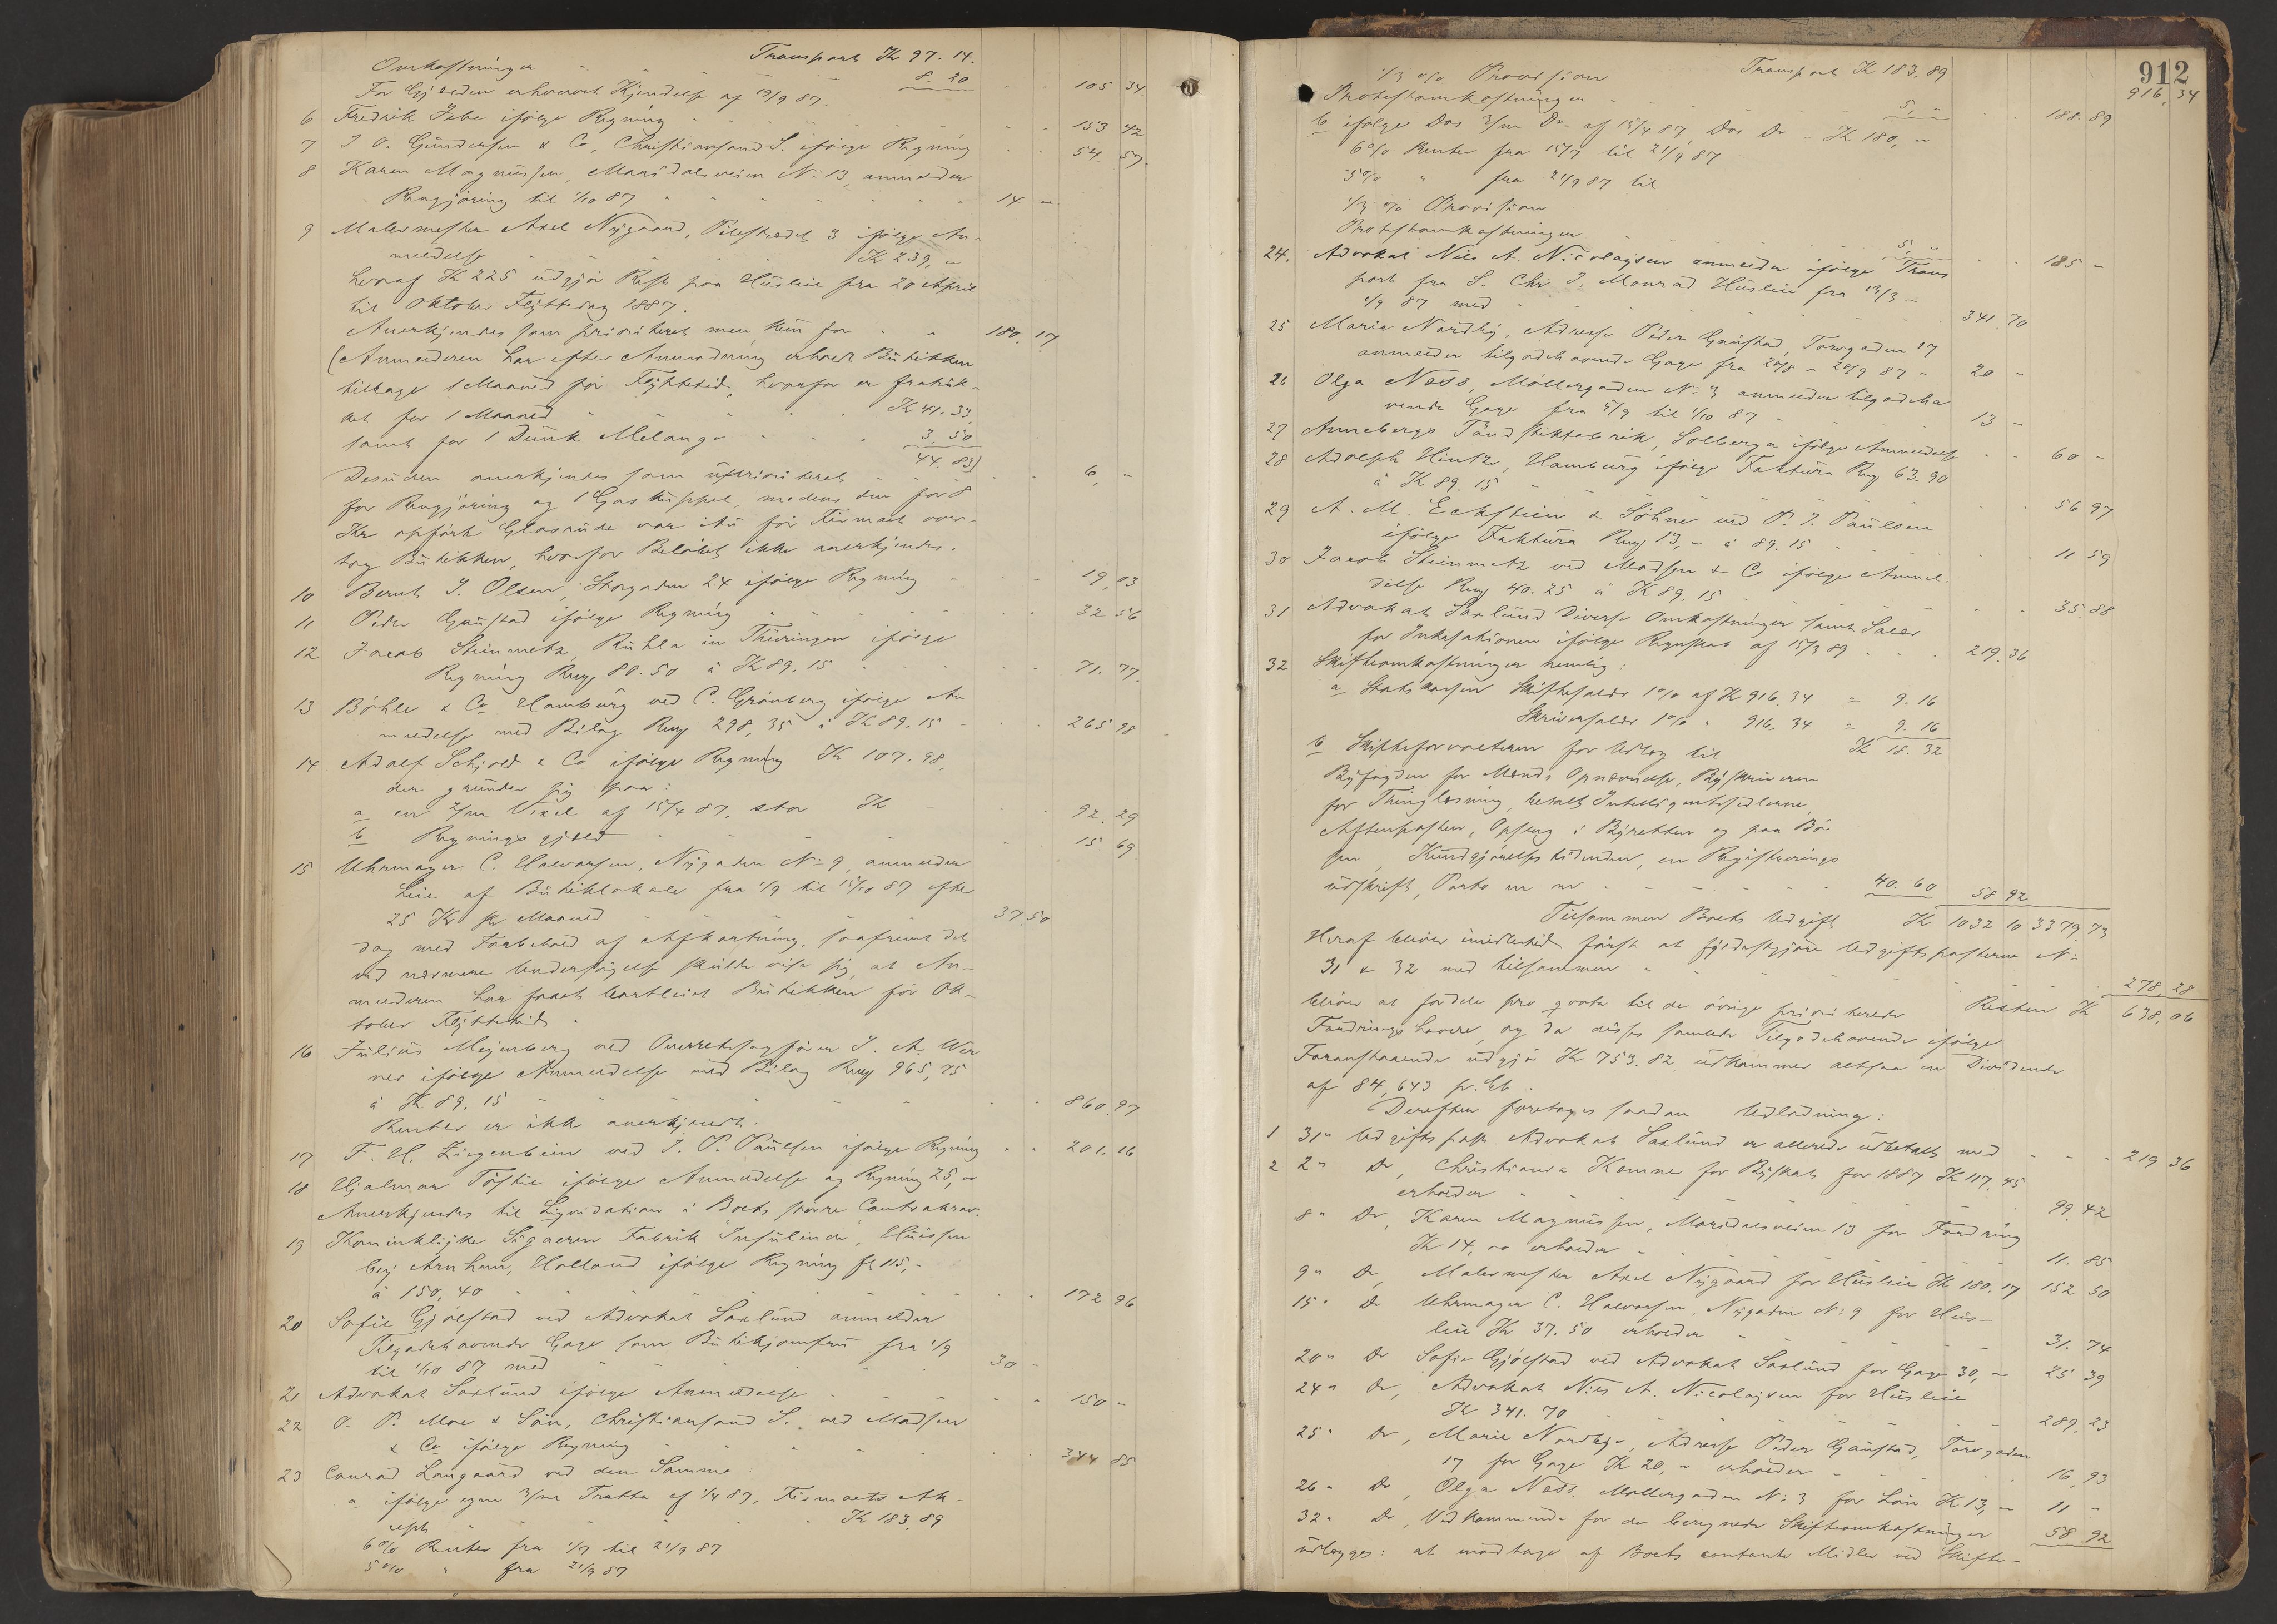 Transport K 97. 14.
Omkostninger - - 8. 20
For Gjælden erhvervet Kjendelse af 19/9 87. - - 105 34.
6 Fredrik Jebe ifølge Regning - - 153 42
7 J O. Gundersen & Co, Christiansand S. ifølge Regning - - 54. 57.
8 Karen Magnussen, Maridalsveien No 13, anmelder
Rengjøring til 1/10 87 - - 14 "
9 Malermester Axel Nygaard, Pilestrædet 3 ifølge An-
meldelse - - K 239, "
hvoraf K 225 udgjør Rest paa Husleie fra 20 April
til Oktober Flyttedag 1887.
Anerkjendes som prioriteret men kun for - - 180. 17
(Anmelderen har efter Anmodning erholdt Butikken
tilbage 1 Maaned før Flyttetid, hvorfor er fratruk-
ket for 1 Maaned - - K 41. 33
samt for 1 Dunk Melange - - 3. 50
44. 83)
Desuden anerkjendes som uprioriteret - - 6, "
for Rengjøring og 1 Gaskuppel, medens den for 8
Kr opførte Glasrude var itu før Firmaet over-
tog Butikken, hvorfor Beløbet ikke anerkjendes.
10 Bernt J. Olsen, Storgaden 24 ifølge Regning - - 19, 03
11 Peder Gaustad ifølge Regning - - 32 56
12 Jacob Steinmetz, Ruhla in Thüringen ifølge
Regning Rmg 80. 50 à K 89. 15 - - 71. 77.
13 Böhle & Co Hamburg ved C. Grønberg ifølge An
meldelse med Bilag Rmg 298, 35 à K 89. 15 - - 265 98
14 Adolf Schjold & Co ifølge Regning K 107. 98,
der grunder sig paa:
a en 2/m Vexel af 15/4 87, stor K - - 92. 29
b Regningsgjæld - - 15. 69
15 Uhrmager C. Halvorsen, Nygaden No 9, anmelder
Leie af Butiklokale fra 1/9 til 15/10 87 efter
25 Kr pr Maaned - - 37. 50
dog med Forbehold af Afkortning, saafremt det
ved nærmere Undersøgelse skulde vise sig, at An-
melderen har faaet bortleiet Butikken før Ok-
tober Flyttetid.
16 Julius Meyenberg ved Overretssagfører J. A. Wer
ner ifølge Anmeldelse med Bilag Rmg 965, 75
à K 89. 15 - - 860. 97
Renter er ikke anerkjendt.
17 F. H. Ziegenbein ved J. P. Paulsen ifølge Regning - - 201. 16
18 Hjalmar Tøstie ifølge Anmeldelse og Regning 25, "
Anerkjendes til Ligvidation i Boets større Contrakrav.
19 Koninklijke Sigaren Fabrik Insulinde, Huissen
bey Arnhem, Holland ifølge Regning fl 115, -
à 150, 40 - - 172 96
20 Sofie Gjølstad ved Advokat Saxlund anmelder
Tilgodehavende Gage som Butikjomfru fra 1/9
til 1/10 87 med - - 30 -
21 Advokat Saxlund ifølge Anmeldelse - - 150 -
22 O. P. Moe & Søn, Christiansand S. ved Madsen
& Co ifølge Regning - - 344 85
23 Conrad Langaard ved den Samme:
a ifølge egen 3/m Tratta af 1/4 87, Firmaets Ak-
cept - - K 183, 89
6% Renter fra 1/7 til 21/9 87
5% " fra 21/9 87
912
Transport K 183. 89 916, 34
1/3 % Provision
Protestomkostninger - - 5, " - - 188. 89
b ifølge Dos 3/m Do af 15/4 87 Dos Do - K 180, "
6% Renter fra 15/7 til 21/9 87
5% " fra 21/9 87 til
1/3 % Provision
Protestomkostninger - - 5, " - - 185 "
24. Advokat Nils A. Nicolaysen anmelder ifølge Trans
port fra S. Chr J. Monrad Husleie fra 13/3 -
1/9 87 med - - 341. 70
25 Marie Nordby, Adresse Peder Gaustad, Torvgaden 17
anmelder tilgodehavende Gage fra 20/8 - 20/9 87 - 20 -
26 Olga Næss, Møllergaden No 3 anmelder tilgodeha
vende Gage fra 5/9 til 1/10 87 - 13 -
27 Annebergs Tändstikfabrik, Solberga ifølge Anmeldelse - - 60 -
28 Adolph Hintze, Hamburg ifølge Faktura Rmg 63. 90
à K 89. 15 - - 56 97
29 A. M. Eckstein & Söhne ved P. J. Paulsen
ifølge Faktura Rmg 13, - à 89. 15 - - 11 59
30 Jacob Steinmetz ved Madsen & Co ifølge Anmel-
delse Rmg 40. 25 à K 89. 15 - - 35. 88
31 Advokat Saxlund Diverse Omkostninger samt Salær
for Inkasationen ifølge Regnskab af 15/3 89 - - 219. 36
32 Skifteomkostninger nemlig:
a Statskassen Skiftesalær 1% af K 916. 34 = 9. 16
Skriversalær 1% " 916. 34 = 9. 16
K 18. 32
b Skifteforvalteren for Udlæg til
Byfogden for Mænds Opnævnelse, Byskriveren
for Thinglæsning, betalt Intelligentssedlerne,
Aftenposten, Opslag i Byretten og paa Bør
sen, Kundgjørelsestidenden, en Registrerings
udskrift, Porto m m - - 40. 60 58 92
Tilsammen Boets Udgift K 1032 10 3379. 73
Heraf bliver imidlertid først at fyldestgjøre Udgiftsposterne No
31 & 32 med tilsammen - - 278. 28
Resten K 638, 06
bliver at fordele pro qvota til de øvrige prioriterede
Fordringshavere, og da disses samlede Tilgodehavende ifølge
Foranstaaende udgjør K 753. 82 udkommer altsaa en Dividende
af 84,643 pr. Ct.
Derefter foretages saadan Udlodning:
1 31" Udgiftspost Advokat Saxlund er allerede udbetalt med - - 219 36
2 2" Do, Christiania Kemner for Byskat for 1887 K 117. 45
erholder - - 99. 42
8" Do, Karen Magnussen, Maridalsveien 13 for Fordring
K 14, oo erholder - - 11. 85
9" Do, Malermester Axel Nygaard for Husleie K 180. 17 152 50
15" Do Uhrmager C. Halvorsen, Nygaden No 9 for Hus-
leie K 37. 50 erholder - - 31. 74
20" Do Sofie Gjølstad ved Advokat Saxlund for Gage 30, - 25 39
24" Do, Advokat Nils A. Nicolaysen for Husleie
K 341. 70 - - 289. 23
25" Do, Marie Nordbye, Adresse Peder Gaustad, Torvgaden
17 for Gage K 20, " erholder - - 16, 93
26" Do, Olga Næss. Møllergaden No 3 for Løn K 13, - 11 -
32" Do, Vedkommende for de beregnede Skifteomkostninger 58. 92
udlægges: at modtage af Boets contante Midler ved Skifte-